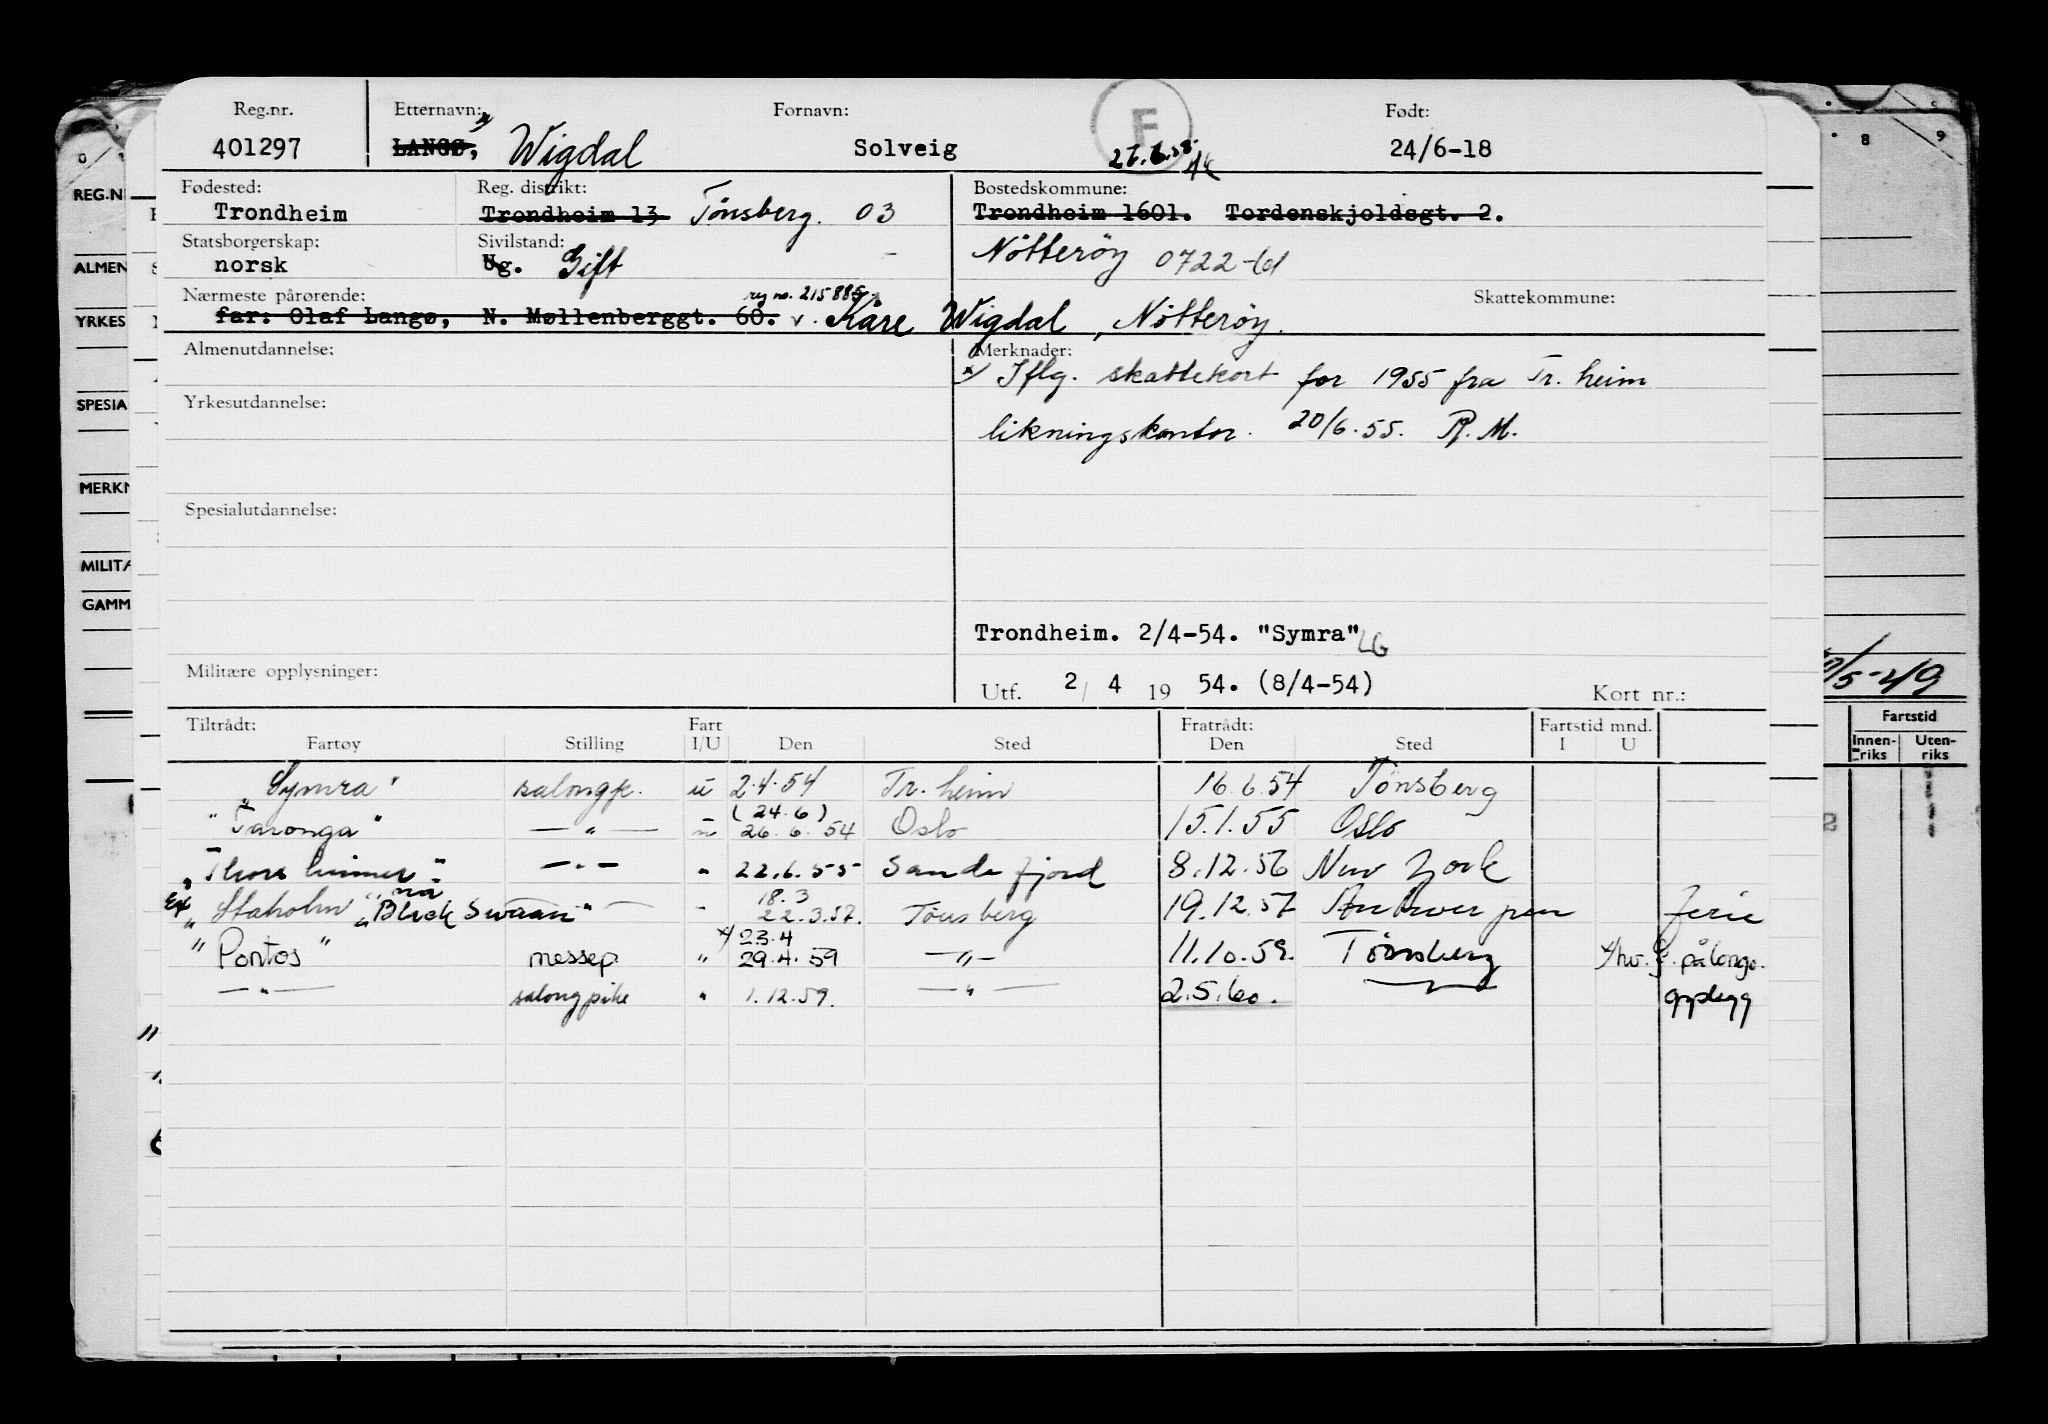 Reg.nr. Etternavn: Fornavn: Født:
401297 LANGØ, Wigdal Solveig F 24/6-18
Fødested: Reg. distrikt: Bostedskommune:
Trondheim Trondheim 13 Tönsberg. 03 Trondheim 1601. Tordenskjoldsgt. 2.
Statsborgerskap: Sivilstand:
norsk Ug. Gift Nötteröy 0722
Nærmeste pårørende: reg no. Skattekommune:
far: Olaf Langø, N. Møllenberggt. 60. Kåre Wigdal, Nötteröy.
Almenutdannelse: Merknader:
x/ Iflg. skattekort for 1955 fra Tr. heim
Yrkesutdannelse:
likningskontor. 20/6.55. R. M.
Spesialutdannelse:
Trondheim. 2/4-54. "Symra" LG
Militære opplysninger:
Utf. 2/ 4 19 54. (8/4-54) Kort nr.:
Tiltrådt: Fart Fratrådt: Fartstid mnd.
Fartøy Stilling I/U Den Sted Den Sted I U
"Symra" salongp. u 2.4.54 Tr. heim 16.6.54 Tönsberg
(24.6)
"Taronga" — " — u 26.6.54 Oslo 15.1.55 Oslo
— " — " 22.6.55 Sandefjord 8.12.56 New York
nå 18.3
Ex "Staholm" "Black Swan" — " 22.3.57. Tönsberg 19.12.57 Antwerpen ferie
x/ 23.4
"Pontos" messep. " 29.4.59 — " — 11.10.59. Tönsberg
— " — salongpike " 1.12.59. — " — 2.5.60. opplegg
REG.N
ALMEN
YRKES
SPESIA
MERKN
MILITÆ
GAMM
8 9
/5-49
Fartstid
Innen-riks Uten-riks